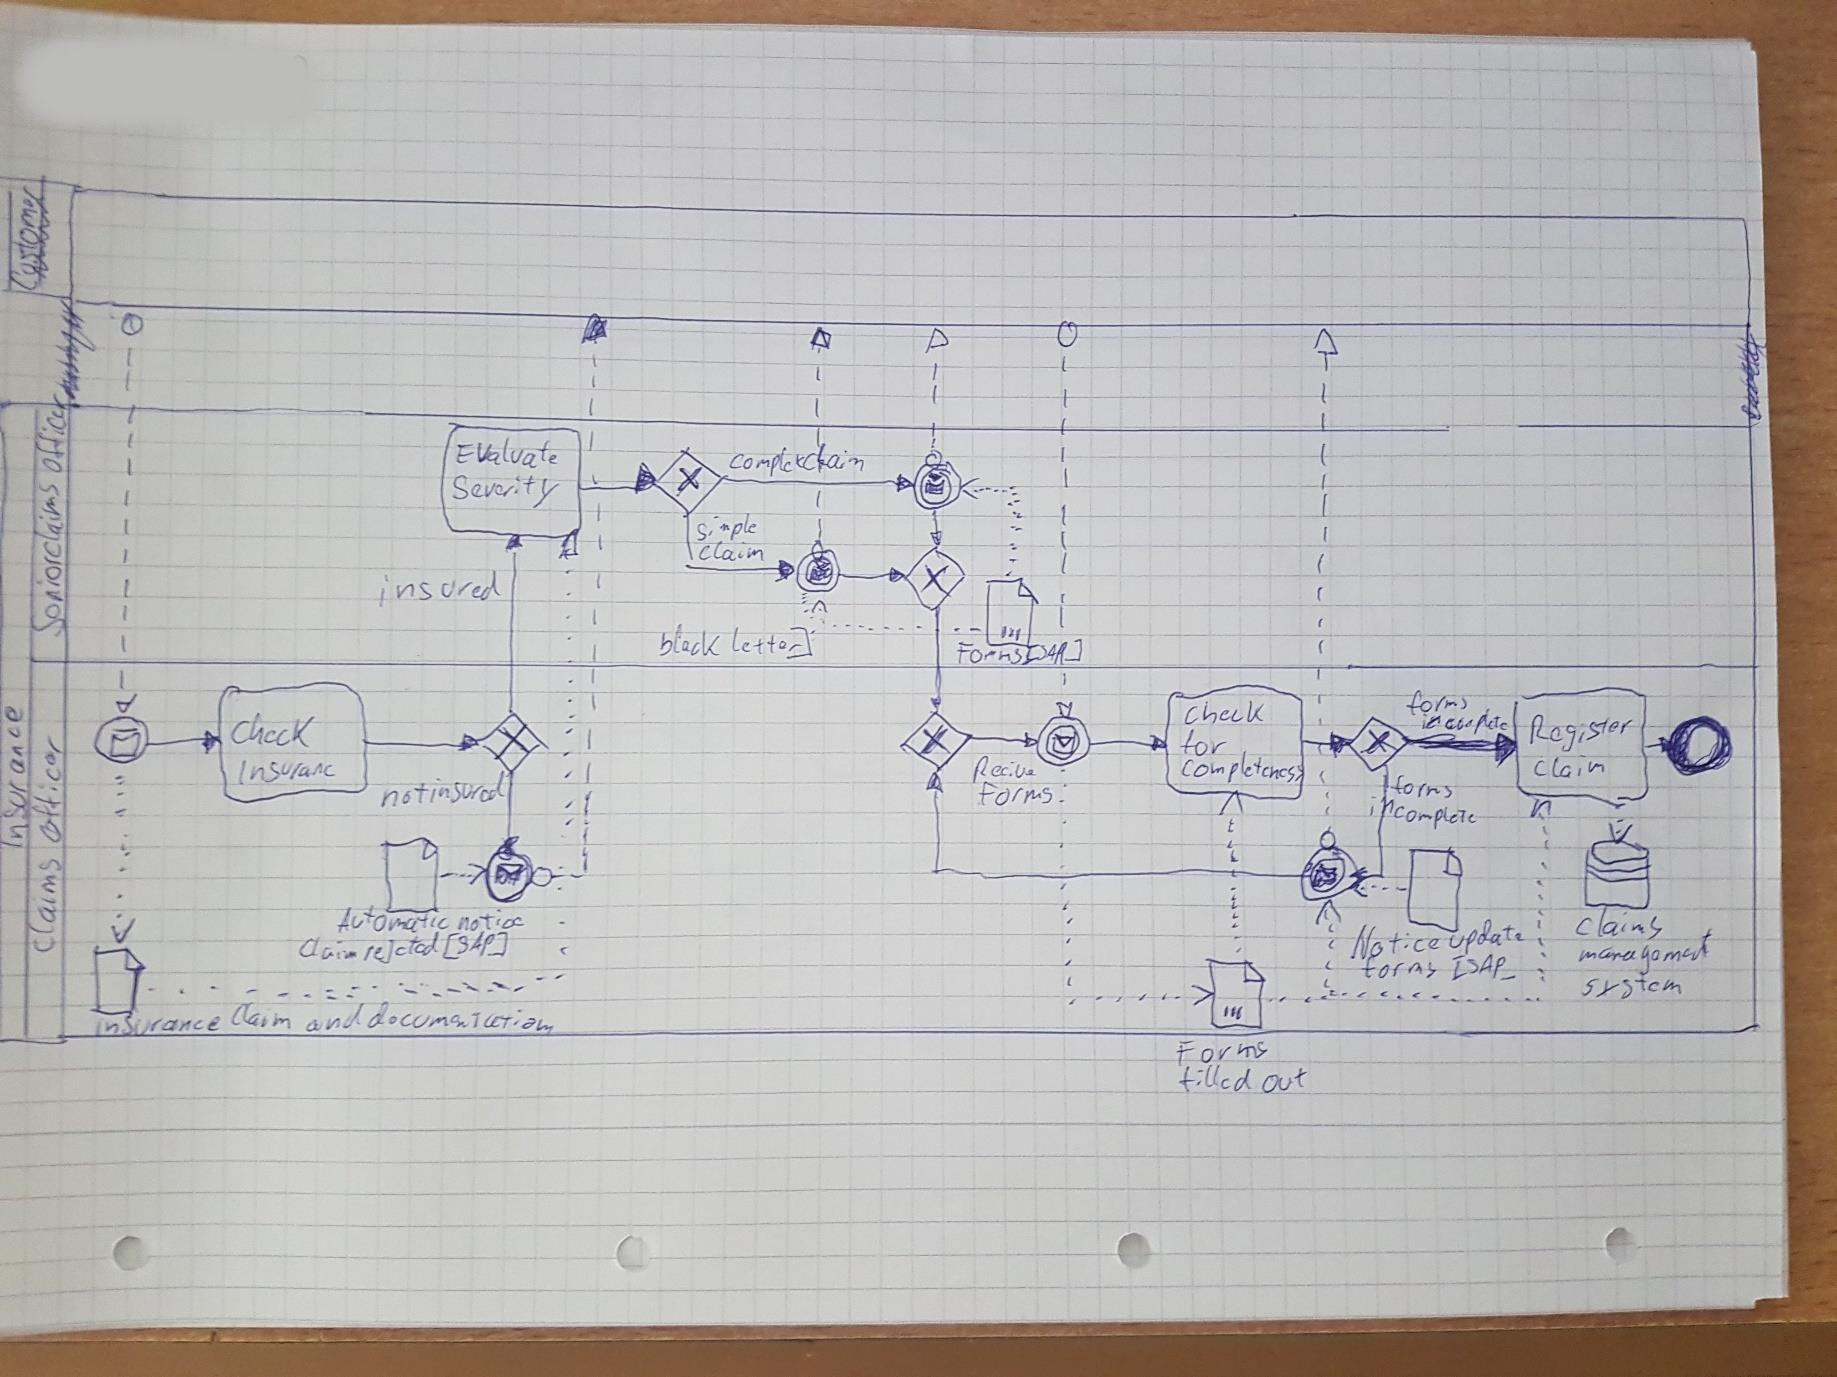 Customer
Insurance
Soniorclaims officer
Claims officer
Evaluate
Severity
complexclaim
simple
claim
insured
black letter]
Forms[SAP]
Check
Insuranc
notinsured
Automatic notice
Claim rejcted [SAP]
insurance Claim and documentation
Recive
Forms
check
for
completeness
forms
complete
forms
incomplete
Register
claim
Notice update
forms [SAP_
claims
management
system
Forms
filled out